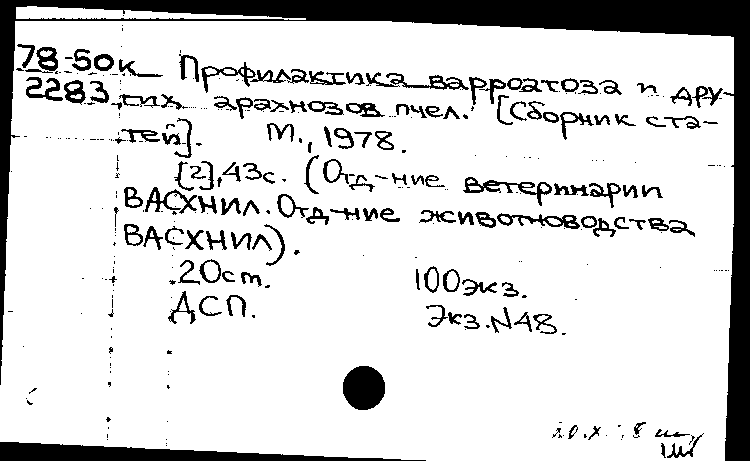 78-50к Профилактика варроатоза и дру-
2283 гих арахнозов пчел. [Сборник ста-
тей]. М., 1978.
[2], 43с. (Отд-ние ветеринарии
ВАСХНИЛ. Отд-ние животноводства
ВАСХНИЛ).
20см.
100экз.
ДСП.
Экз. N48.